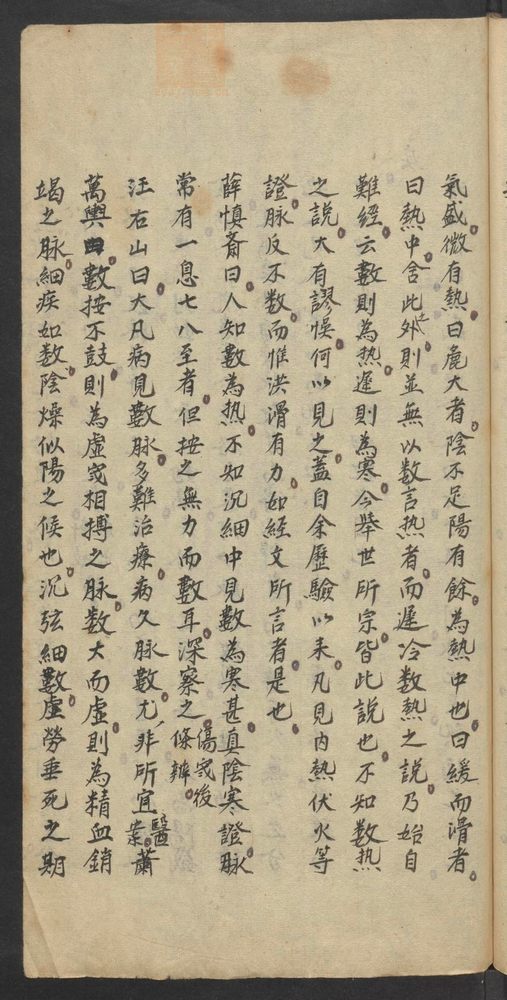 氣盛微有熱曰麄大者陰不足陽有餘為熱中也曰緩而滑者
曰熱中舍此之外則並無以数言热者而遲冷数熱之說乃始自
難經云數則為热遲則為寒今舉世所宗皆此說也不知数热
之說大有謬悞何以見之蓋自余歷驗以来凡見内熱伏火等
證脉反不数而惟洪滑有力如經文所言者是也
薛慎斎曰人知數為热不知沉細中見數為寒甚真陰寒證脉
常有一息七八至者但按之無力而數耳深察之傷寒後條辨
汪右山曰大凡病見數脉多難治療病久脉數尤非所宜醫案蕭
萬輿曰數按不鼓則為虛寒相搏之脉数大而虛則為精血銷
竭之脉細疾如数陰燥似陽之候也沉弦細數虛勞垂死之期